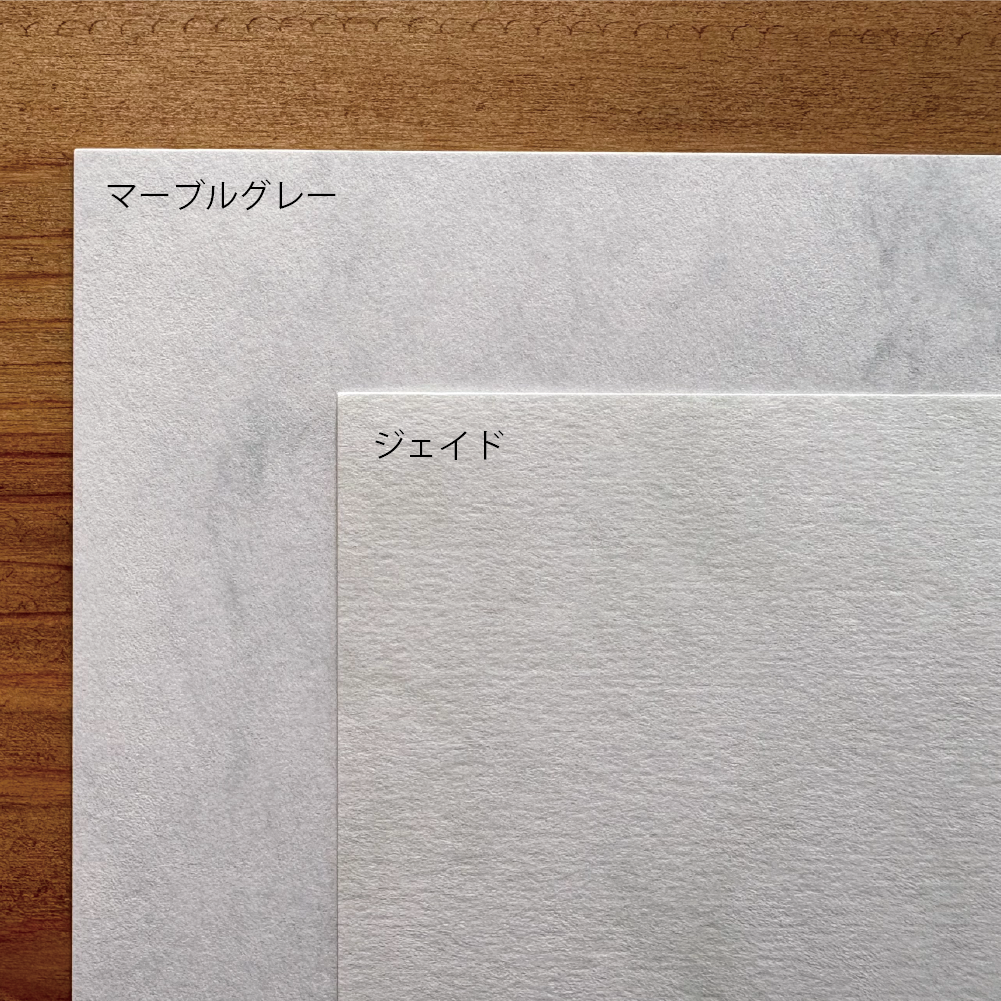 マーブルグレー
ジェイド